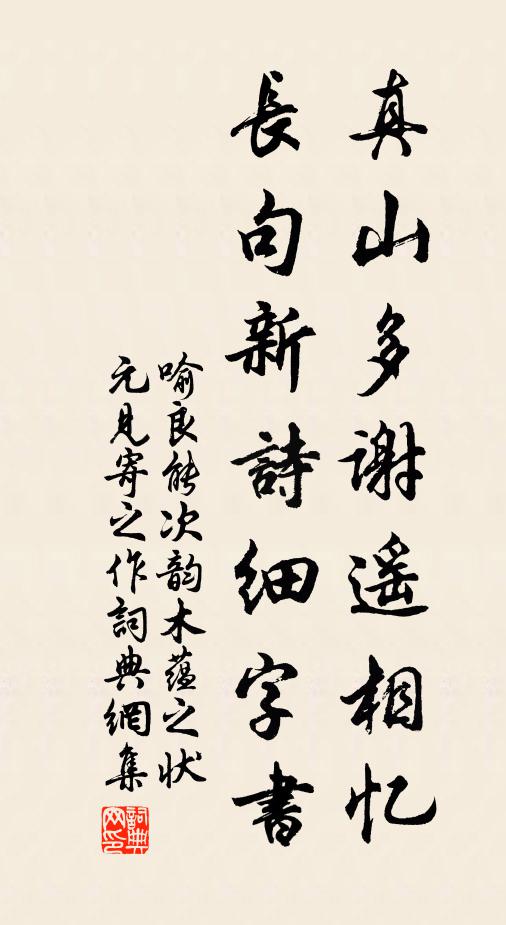 真山多谢遥相忆
長句新詩细字書
喻良能次韵木蕴之状
元見寄之作詞典網集
詞典网印